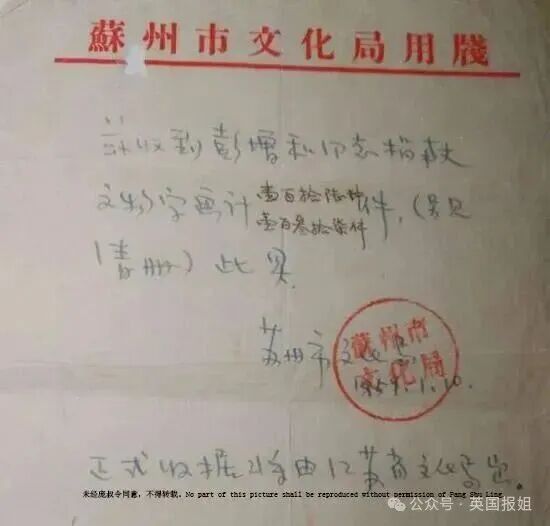 蘇州市文化局用牋
兹收到彭增和同志捐献
文物字画计壹百叁拾柒件件,(另见
清册)此具.
苏州市文化局
蘇州市
文化局
1959.1.10.
正式收据将由江苏省文化局出。
未经庞叔令同意,不得转载。No part of this picture shall be reproduced without permission of Pang Shu Ling
公众号·英国报姐